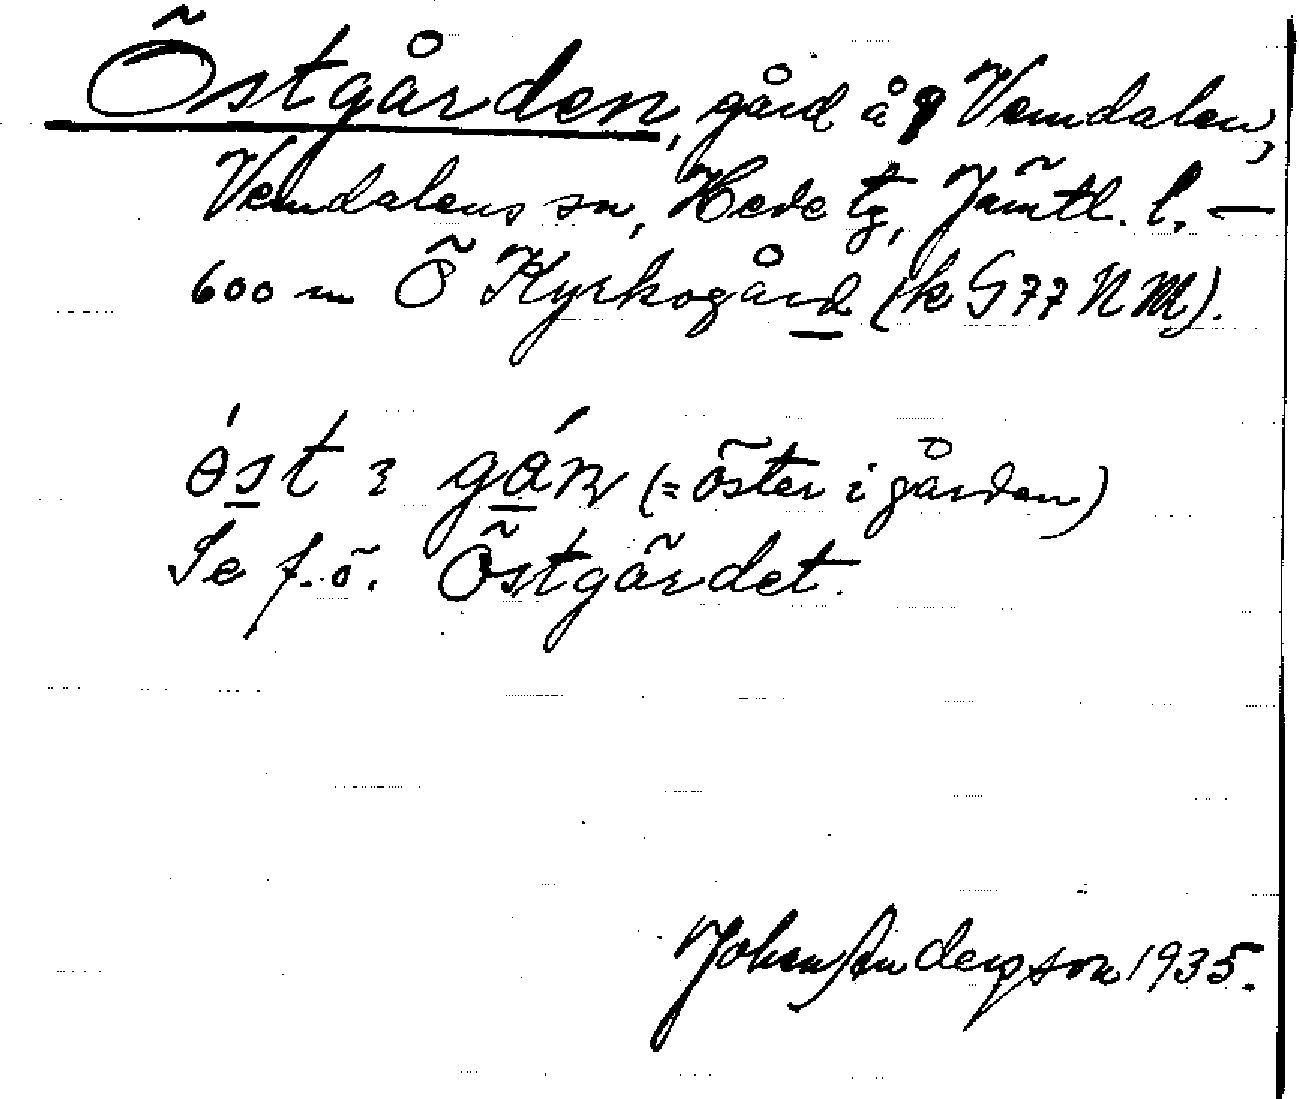 Östgården, gård å Vemdalen,
Vemdalens sn, Hede tg, Jämtl. l. —
600 m Ö Kyrkogård (k G 77 N M).
gán (= öster i gården)
Se f. ö. Östgärdet.
Johan Anderson 1935.